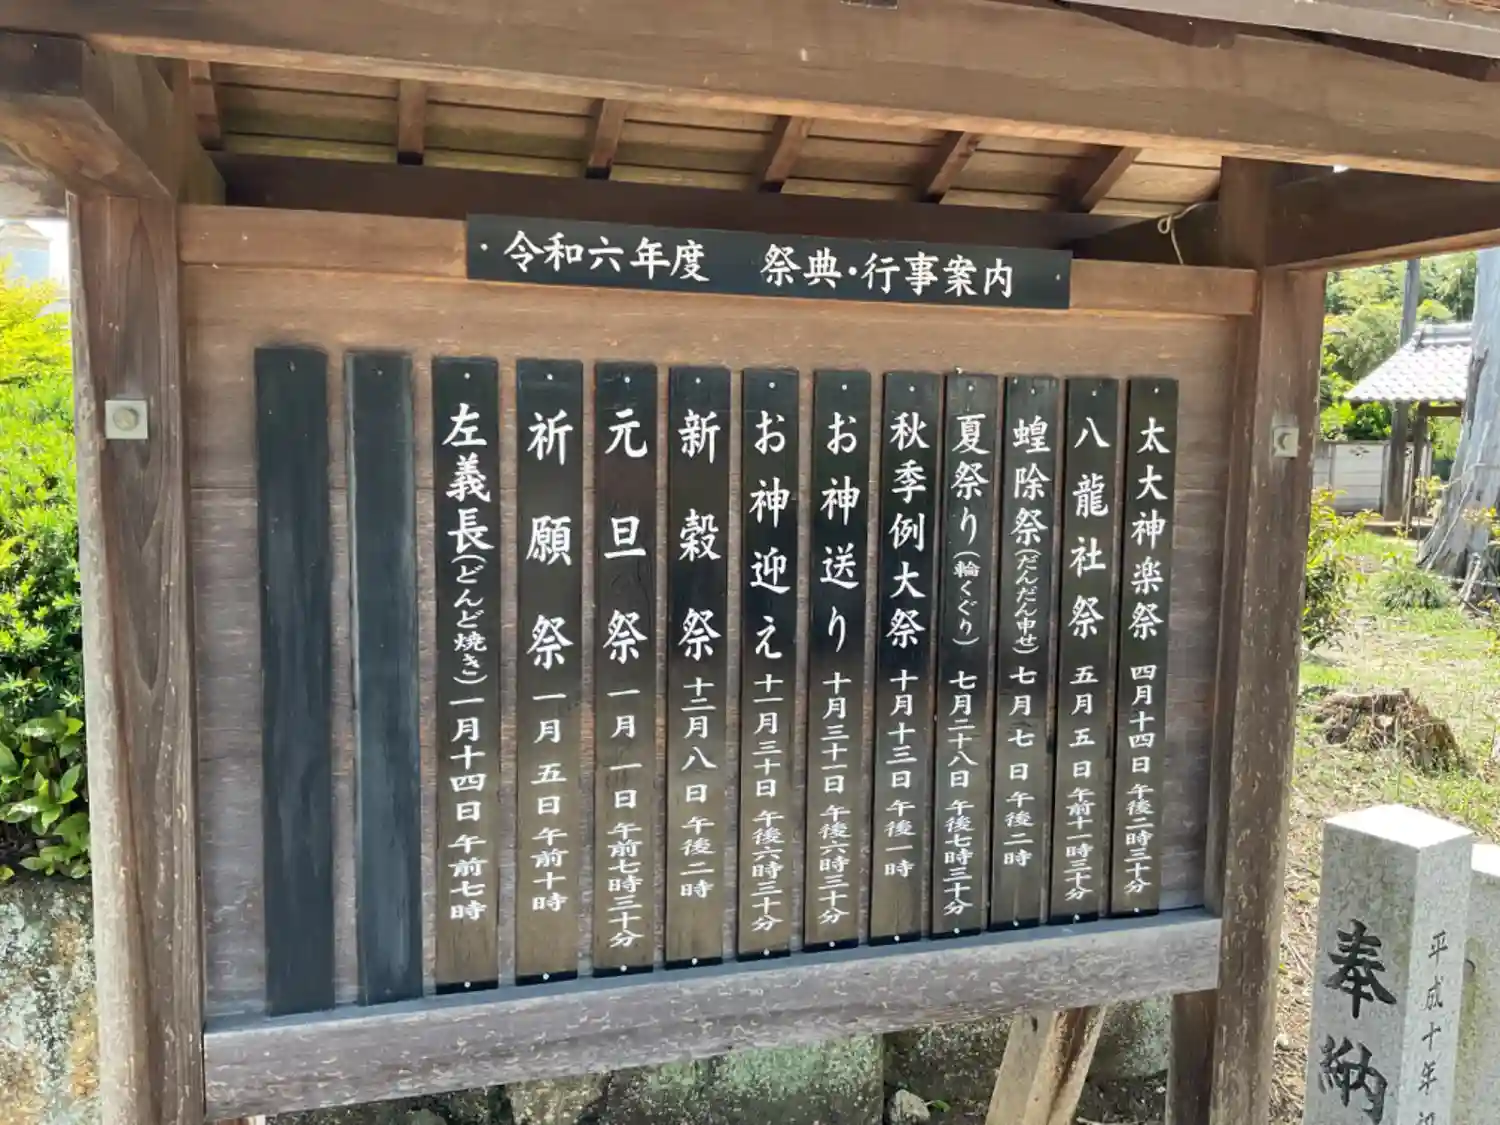 令和六年度 祭典・行事案内
太大神楽祭 四月十四日 午後二時三十分
八龍社祭 五月五日 午前十一時三十分
蝗除祭(だんだん申せ) 七月七日 午後二時
夏祭り(輪くぐり) 七月二十八日 午後七時三十分
秋季例大祭 十月十三日 午後一時
お神送り 十月三十一日 午後六時三十分
お神迎え 十一月三十日 午後六時三十分
新穀祭 十二月八日 午後二時
元旦祭 一月一日 午前七時三十分
祈願祭 一月五日 午前十時
左義長(どんど焼き) 一月十四日 午前七時
奉納
平成十年